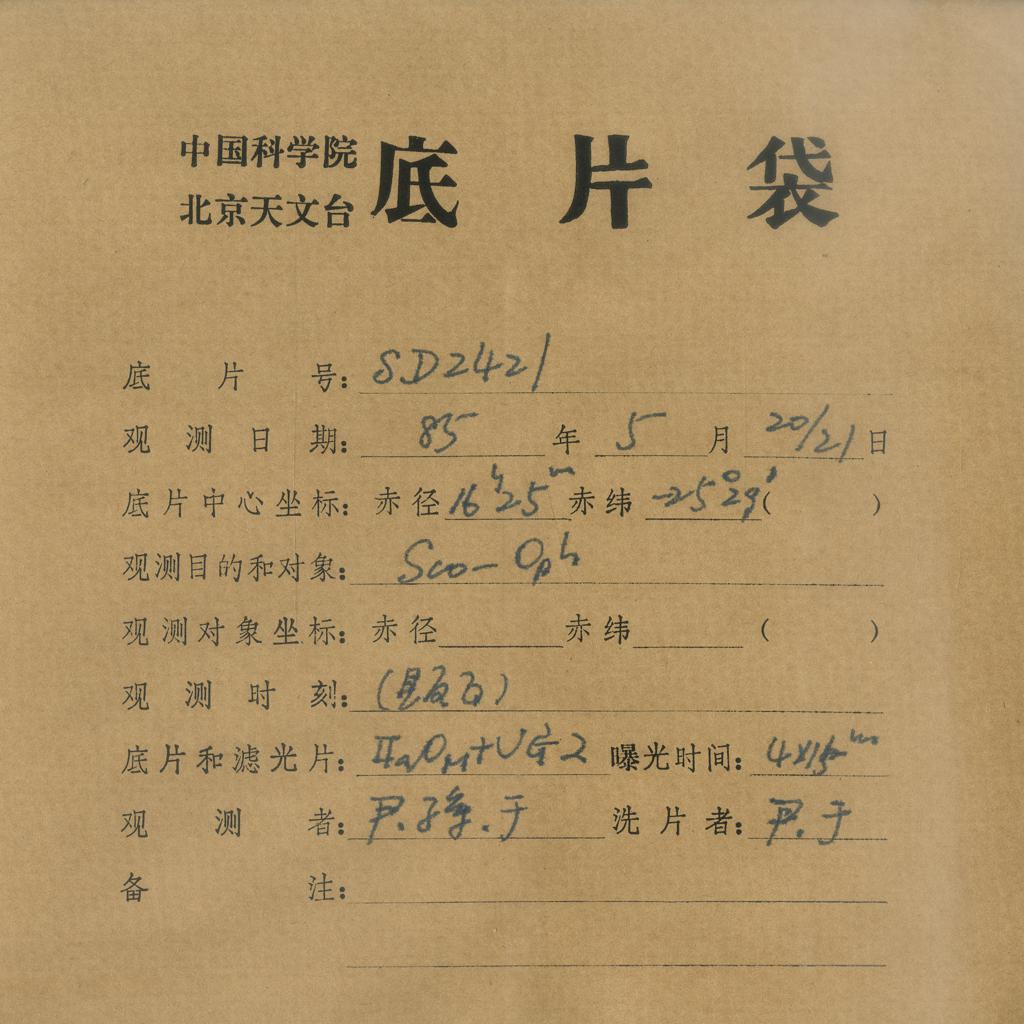 中国科学院
北京天文台
底片袋
底片号：SD2421
观测日期：85年5月20/21日
底片中心坐标：赤径16h25m赤纬-25°29′( )
观测目的和对象：Sco-Oph
观测对象坐标：赤径 赤纬 ( )
观测时刻：(见反面)
底片和滤光片：IIaO 曝光时间：4×15m
观测者：尹.孙.于 洗片者：尹.于
备注：